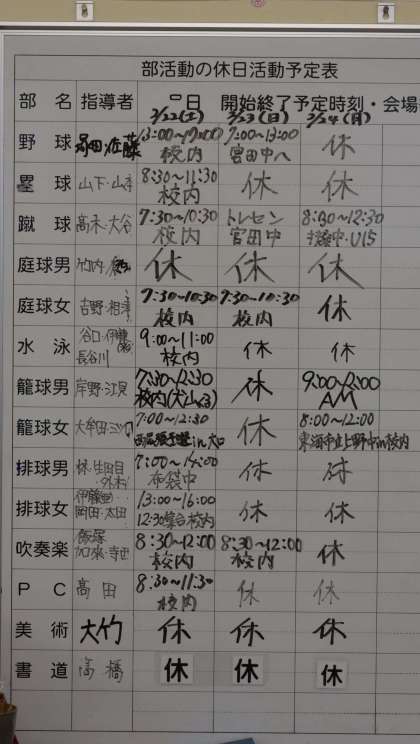 部活動の休日活動予定表
部 名 指導者 月日 開始終了予定時刻・会場
3/22(土) 3/23(日) 3/24(月)
野 球 佐藤 13:00~17:00 校内 7:00~13:00 宮田中へ 休
塁 球 山下・山本 8:30~11:30 校内 休 休
蹴 球 高木・大谷 7:30~10:30 校内 トレセン 宮田中 8:30~12:30 U15
庭球男 竹内・ 休 休 休
庭球女 吉野・相澤 7:30~10:30 校内 7:30~10:30 校内 休
水 泳 谷口・伊藤 長谷川 9:00~11:00 校内 休 休
籠球男 岸野・江貝 7:30~12:30 校内 休 9:00~12:00 AM
籠球女 大牟田・ 7:00~12:30 休 8:00~12:00 校内
排球男 林・生田目 外村 7:00~14:00 布袋中 休 休
排球女 伊藤 岡田・太田 13:00~16:00 12:30集合 校内 休 休
吹奏楽 飯塚 加来・寺西 8:30~12:00 校内 8:30~12:00 校内 休
P C 高田 8:30~11:30 校内 休 休
美 術 大竹 休 休 休
書 道 高橋 休 休 休